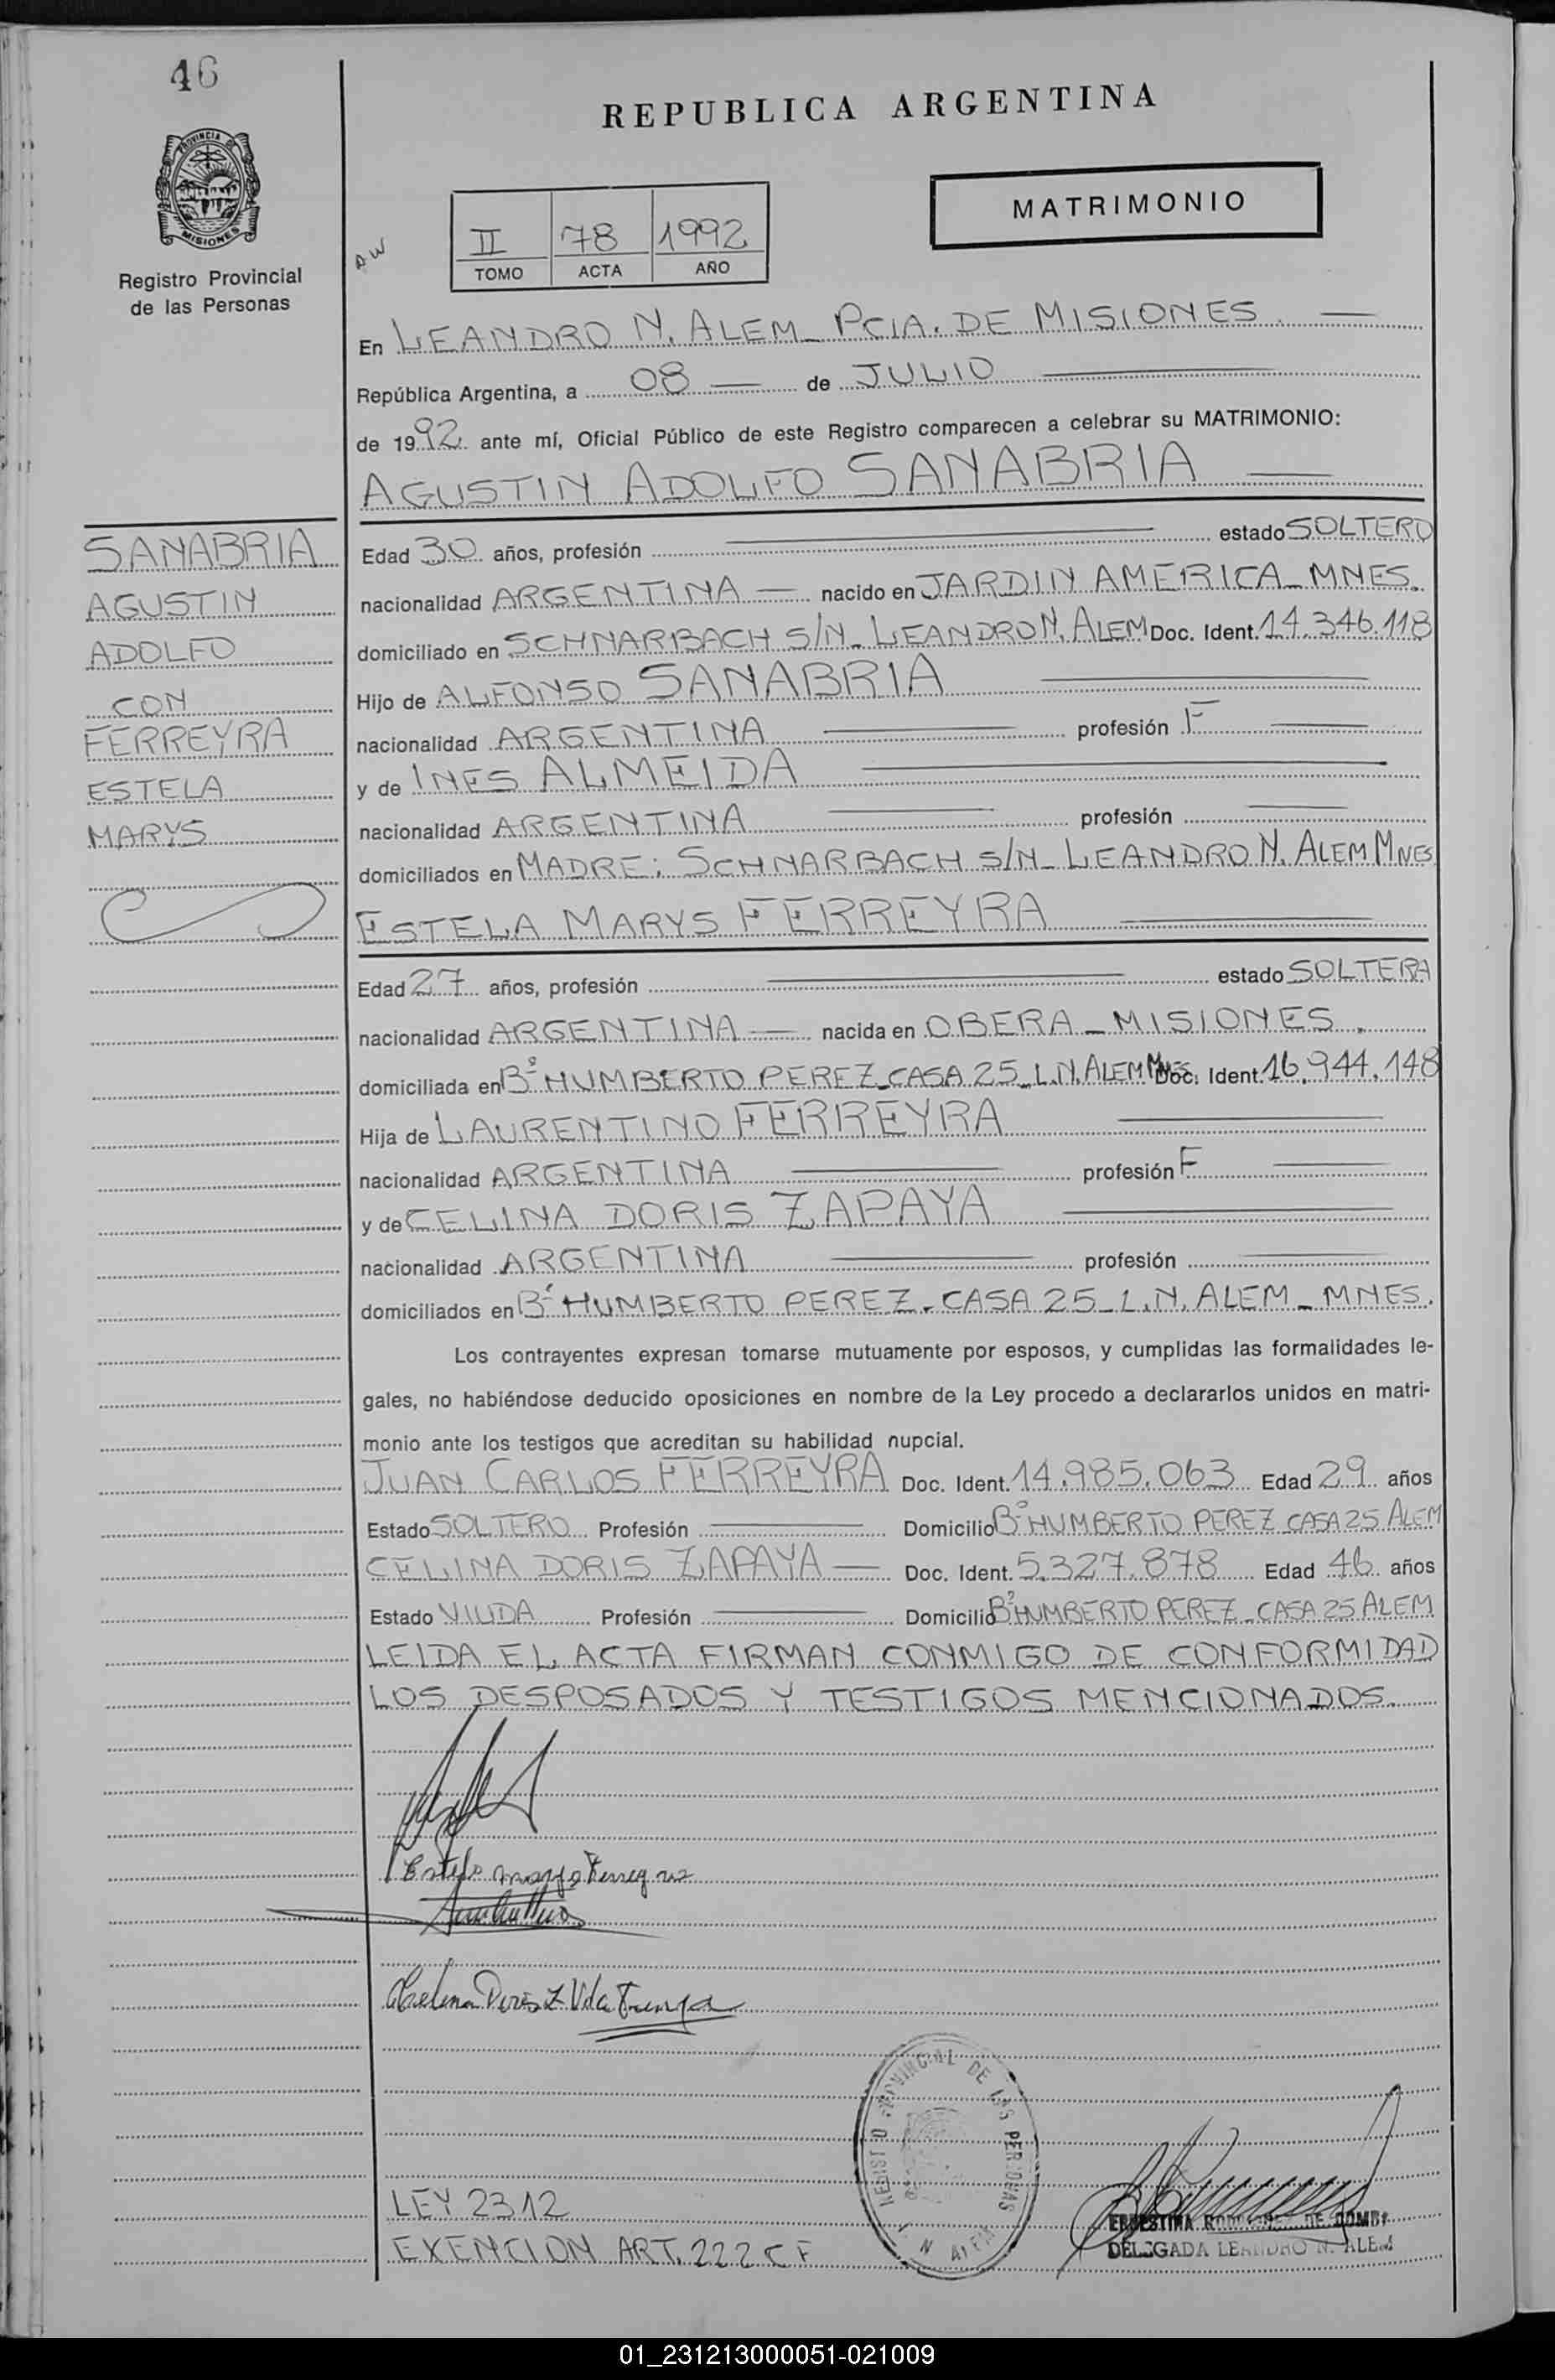 46
REPUBLICA ARGENTINA
PROVINCIA DE
MISIONES
Registro Provincial
de las Personas
MATRIMONIO
AW
II 78 1992
TOMO ACTA AÑO
En LEANDRO N. ALEM - PCIA. DE MISIONES.
República Argentina, a 08 de JULIO
de 1992. ante mí, Oficial Público de este Registro comparecen a celebrar su MATRIMONIO:
AGUSTIN ADOLFO SANABRIA
SANABRIA
AGUSTIN
ADOLFO
CON
FERREYRA
ESTELA
MARYS
Edad 30 años, profesión estado SOLTERO
nacionalidad ARGENTINA nacido en JARDIN AMERICA - MNES.
domiciliado en SCHNARBACH S/N - LEANDRO N. ALEM Doc. Ident. 14.346.118
Hijo de ALFONSO SANABRIA
nacionalidad ARGENTINA profesión F
y de INES ALMEIDA
nacionalidad ARGENTINA profesión
domiciliados en MADRE: SCHNARBACH S/N - LEANDRO N. ALEM MNES
ESTELA MARYS FERREYRA
Edad 27 años, profesión estado SOLTERA
nacionalidad ARGENTINA nacida en OBERA - MISIONES.
domiciliada en Bº HUMBERTO PEREZ - CASA 25 - L.N. ALEM MNES. Doc. Ident. 16.944.148
Hija de LAURENTINO FERREYRA
nacionalidad ARGENTINA profesión F
y de CELINA DORIS ZAPAYA
nacionalidad ARGENTINA profesión
domiciliados en Bº HUMBERTO PEREZ - CASA 25 - L.N. ALEM - MNES.
Los contrayentes expresan tomarse mutuamente por esposos, y cumplidas las formalidades le-
gales, no habiéndose deducido oposiciones en nombre de la Ley procedo a declararlos unidos en matri-
monio ante los testigos que acreditan su habilidad nupcial.
JUAN CARLOS FERREYRA Doc. Ident. 14.985.063 Edad 29 años
Estado SOLTERO Profesión Domicilio Bº HUMBERTO PEREZ CASA 25 ALEM
CELINA DORIS ZAPAYA Doc. Ident. 5.327.878 Edad 46 años
Estado VIUDA Profesión Domicilio Bº HUMBERTO PEREZ - CASA 25 ALEM
LEIDA EL ACTA FIRMAN CONMIGO DE CONFORMIDAD
LOS DESPOSADOS Y TESTIGOS MENCIONADOS.
Estela Marys Ferreyra
REGISTRO PROVINCIAL DE LAS PERSONAS
L N ALEM
LEY 2312
EXENCION ART. 222 C F
ERNESTINA DE
DELEGADA LEANDRO N. ALEM
01_231213000051-021009